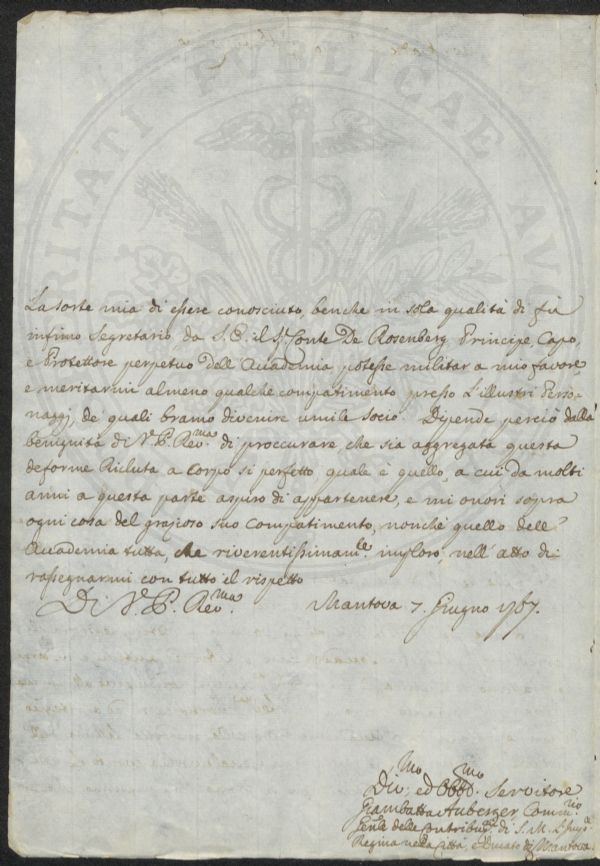 La sorte mia di essere conosciuto, benche in sola qualità di fu
infimo Segretario da S. E. il Sr. Conte De Rosenberg Principe, Capo,
e Protettore perpetuo dell'Accademia potesse militar a mio favore
e meritarmi almeno qualche compatimento presso l'illustri Perso-
naggi, de quali bramo divenire umile socio. Dipende perciò dalla
benignità di V. P. Rev.ma di proccurare, che sia aggregata questa
deforme Recluta a Corpo si perfetto, quale è quello, a cui da molti
anni a questa parte aspiro di appartenere, e mi onori sopra
ogni cosa del grazioso suo Compatimento, nonche quello dell'
Accademia tutta, che riverentissimam.te imploro nell'atto di
rassegnarmi con tutto il rispetto
Di V. P. Rev.ma Mantova 7. Giugno 1767.
Div.mo, ed Obbl.mo Servitore
Giambatta Auberger Comm.rio
Gen.le delle di S. M. L'
Regina nella Città, e Ducato di Mantova.
RITATI PUBLICAE AVO